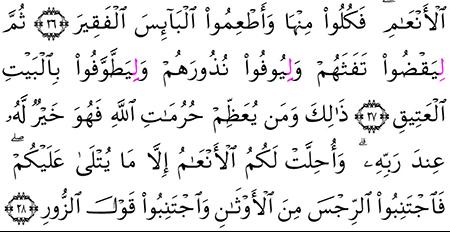 ٱلْأَنْعَٰمِۖ فَكُلُوا۟ مِنْهَا وَأَطْعِمُوا۟ ٱلْبَآئِسَ ٱلْفَقِيرَ ﴿٢٦﴾ ثُمَّ
لِيَقْضُوا۟ تَفَثَهُمْ وَلِيُوفُوا۟ نُذُورَهُمْ وَلِيَطَّوَّفُوا۟ بِٱلْبَيْتِ
ٱلْعَتِيقِ ﴿٢٧﴾ ذَٰلِكَ وَمَن يُعَظِّمْ حُرُمَٰتِ ٱللَّهِ فَهُوَ خَيْرٌ لَّهُۥ
عِندَ رَبِّهِۦۗ وَأُحِلَّتْ لَكُمُ ٱلْأَنْعَٰمُ إِلَّا مَا يُتْلَىٰ عَلَيْكُمْۖ
فَٱجْتَنِبُوا۟ ٱلرِّجْسَ مِنَ ٱلْأَوْثَٰنِ وَٱجْتَنِبُوا۟ قَوْلَ ٱلزُّورِ ﴿٢٨﴾